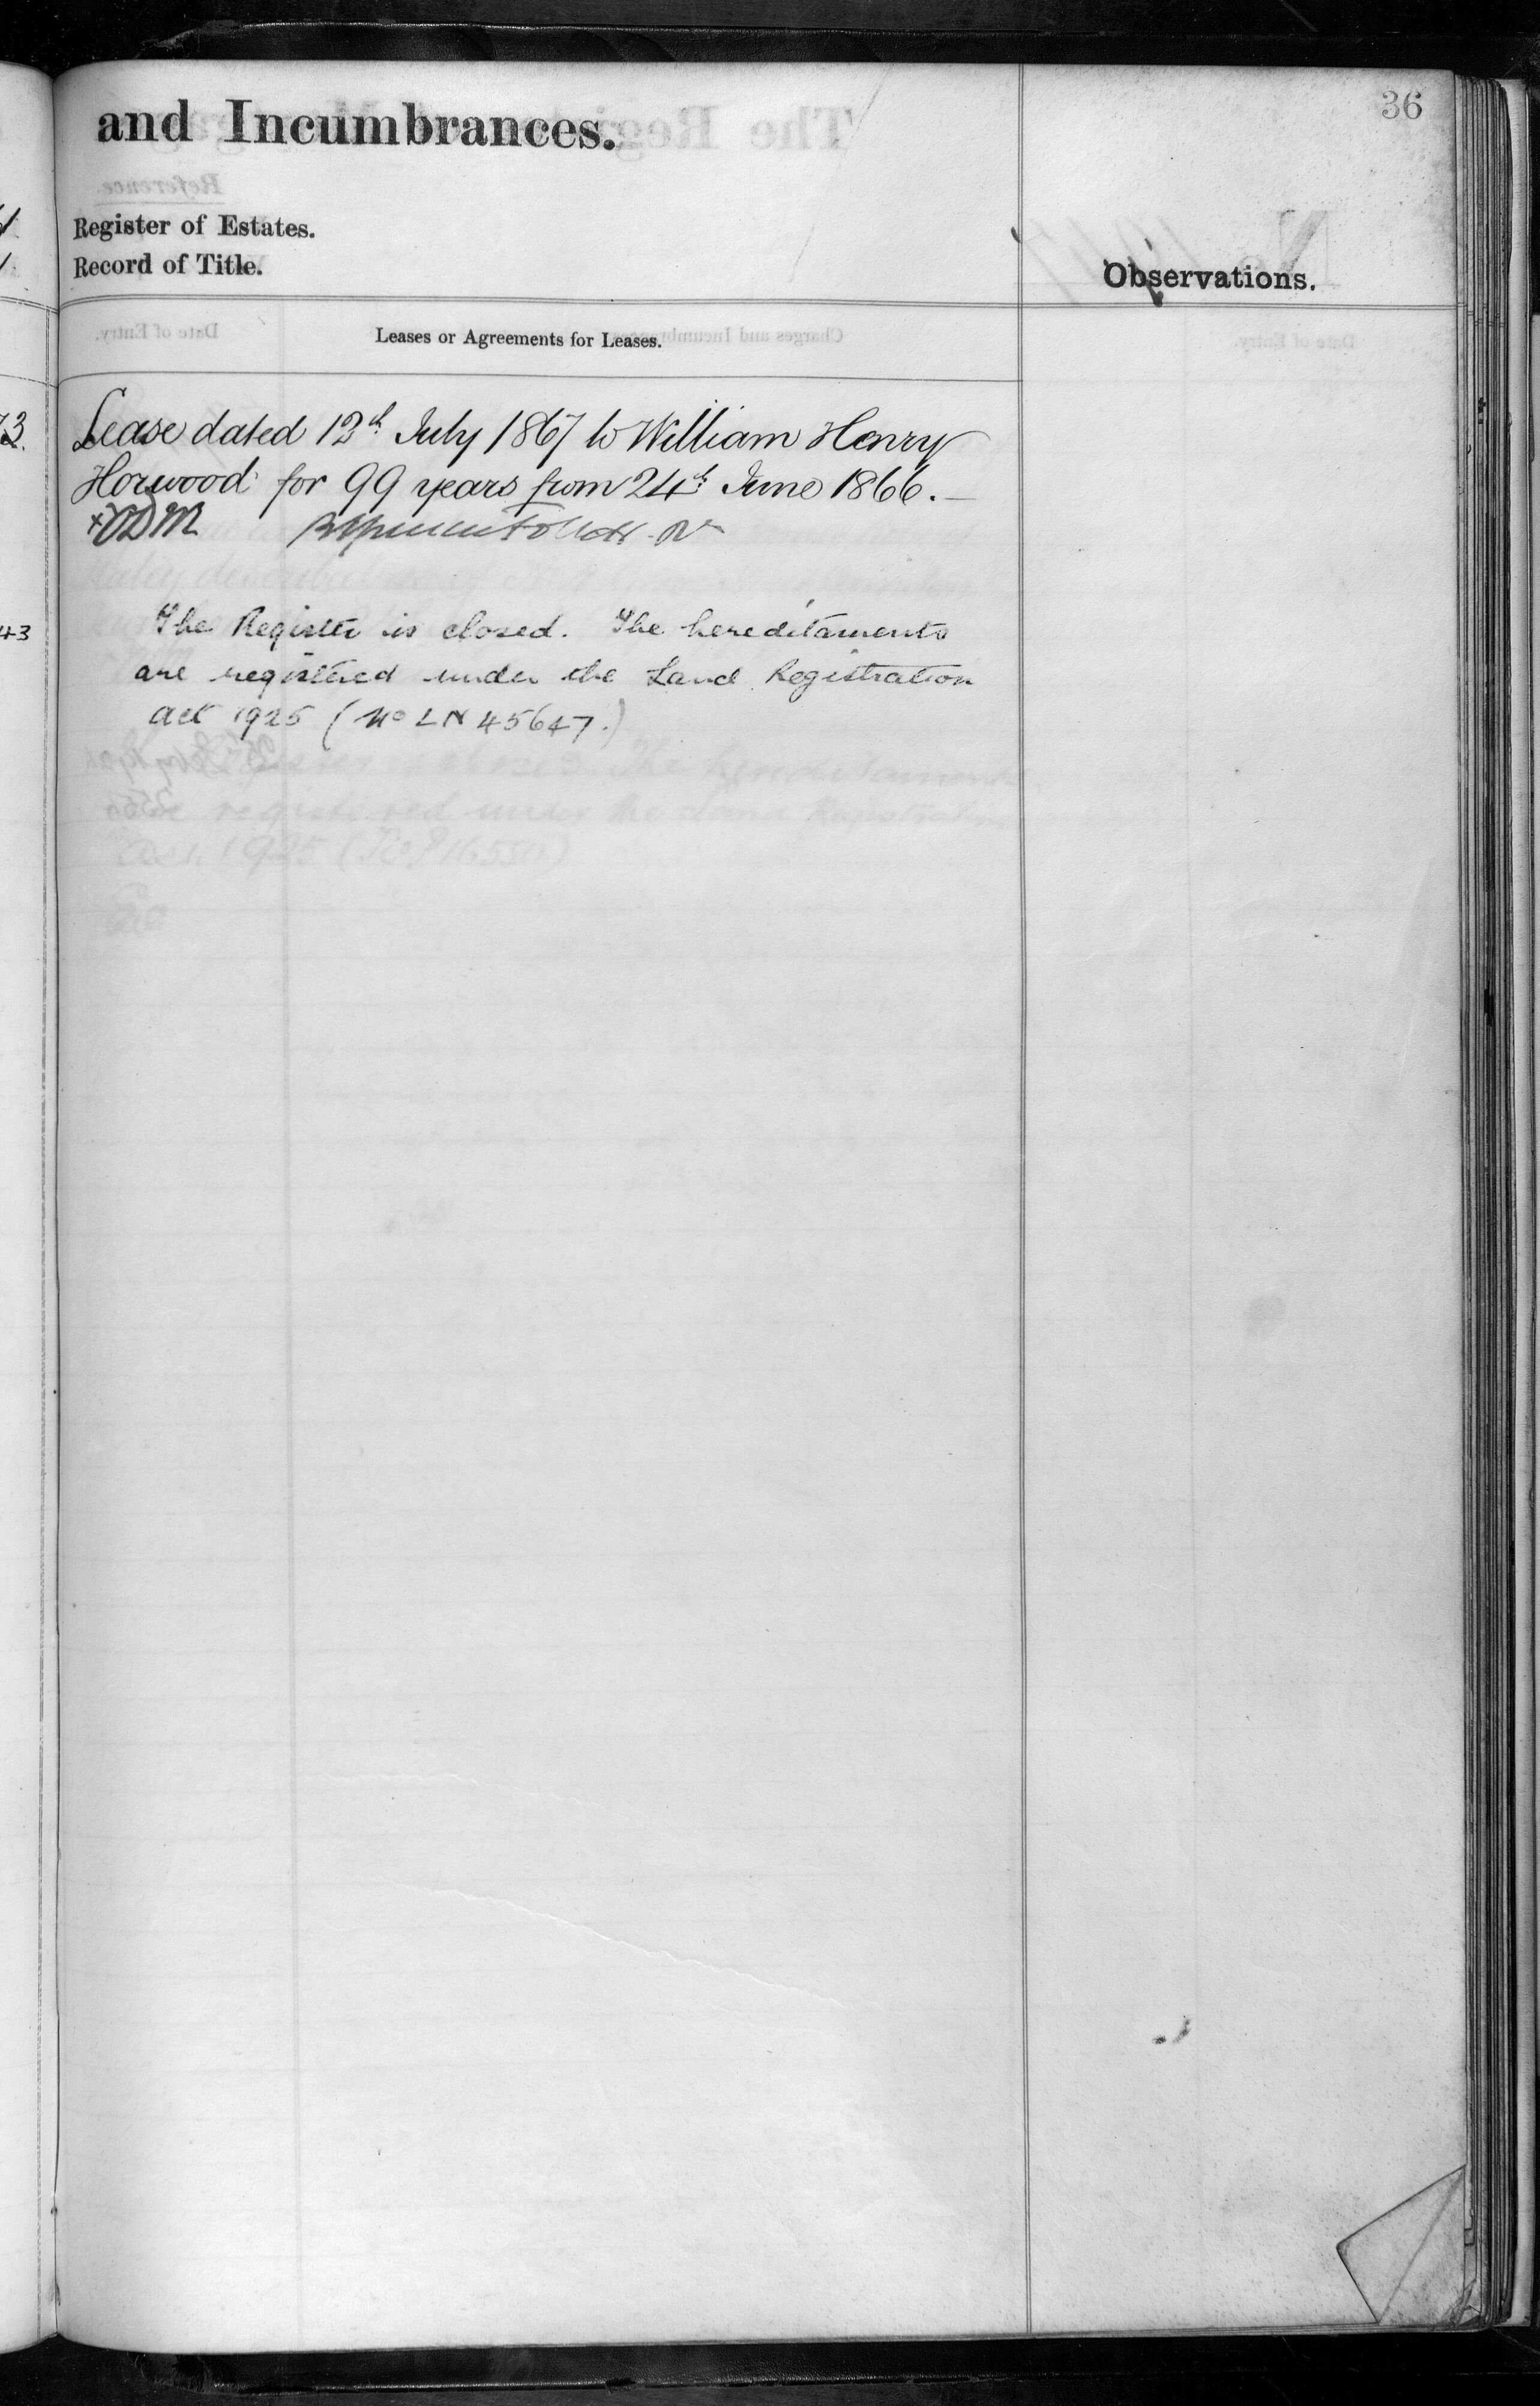 36
and Incumbrances.
Register of Estates.
Record of Title.
Observations.
Leases or Agreements for Leases.
Lease dated 12th July 1867 to William Henry
Horwood for 99 years from 24th June 1866.
The Register is closed. The hereditaments
are registered under the Land Registration
Act 1925 (No LN 45647.)